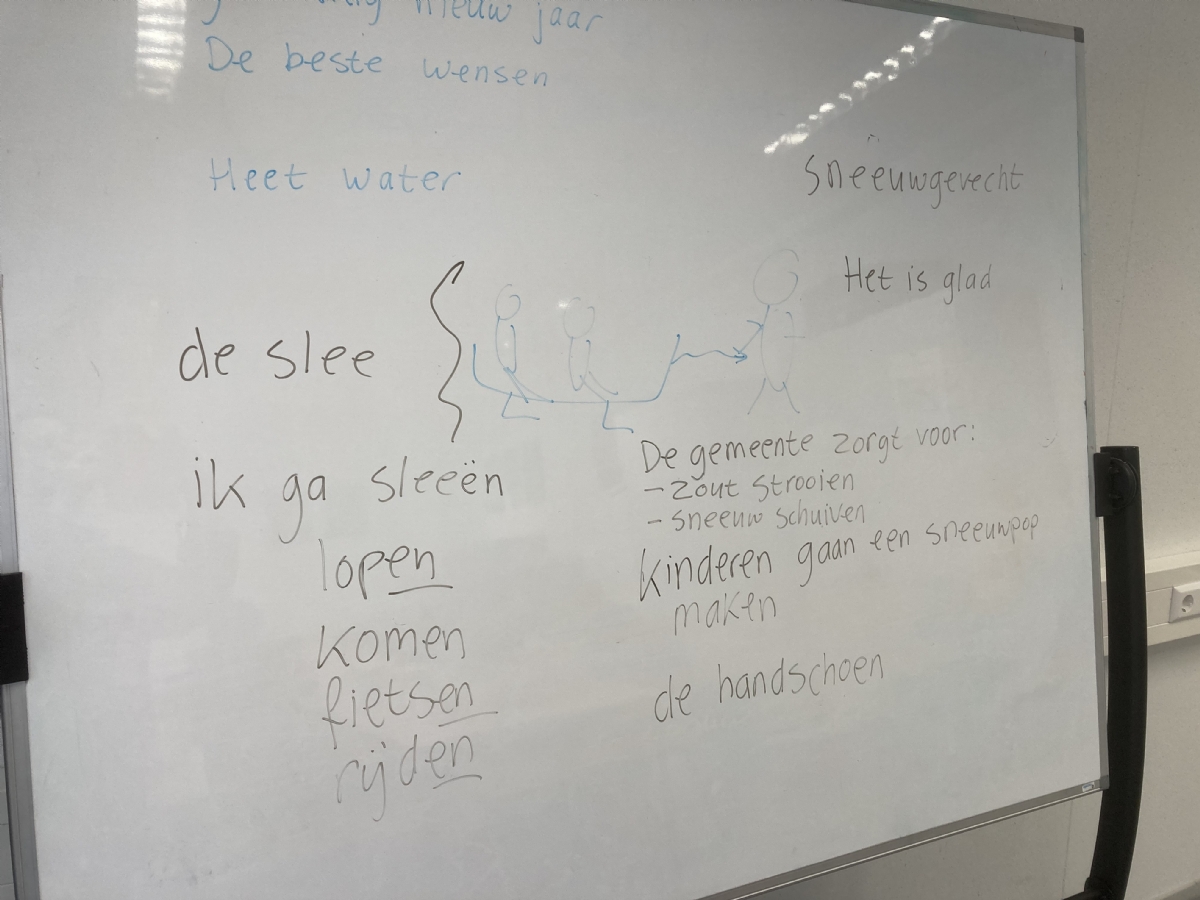 nieuw jaar
De beste wensen
Heet water
Sneeuwgevecht
Het is glad
de slee
ik ga sleeën
lopen
komen
fietsen
rijden
De gemeente zorgt voor:
- zout strooien
- sneeuw schuiven
kinderen gaan een sneeuwpop
maken
de handschoen